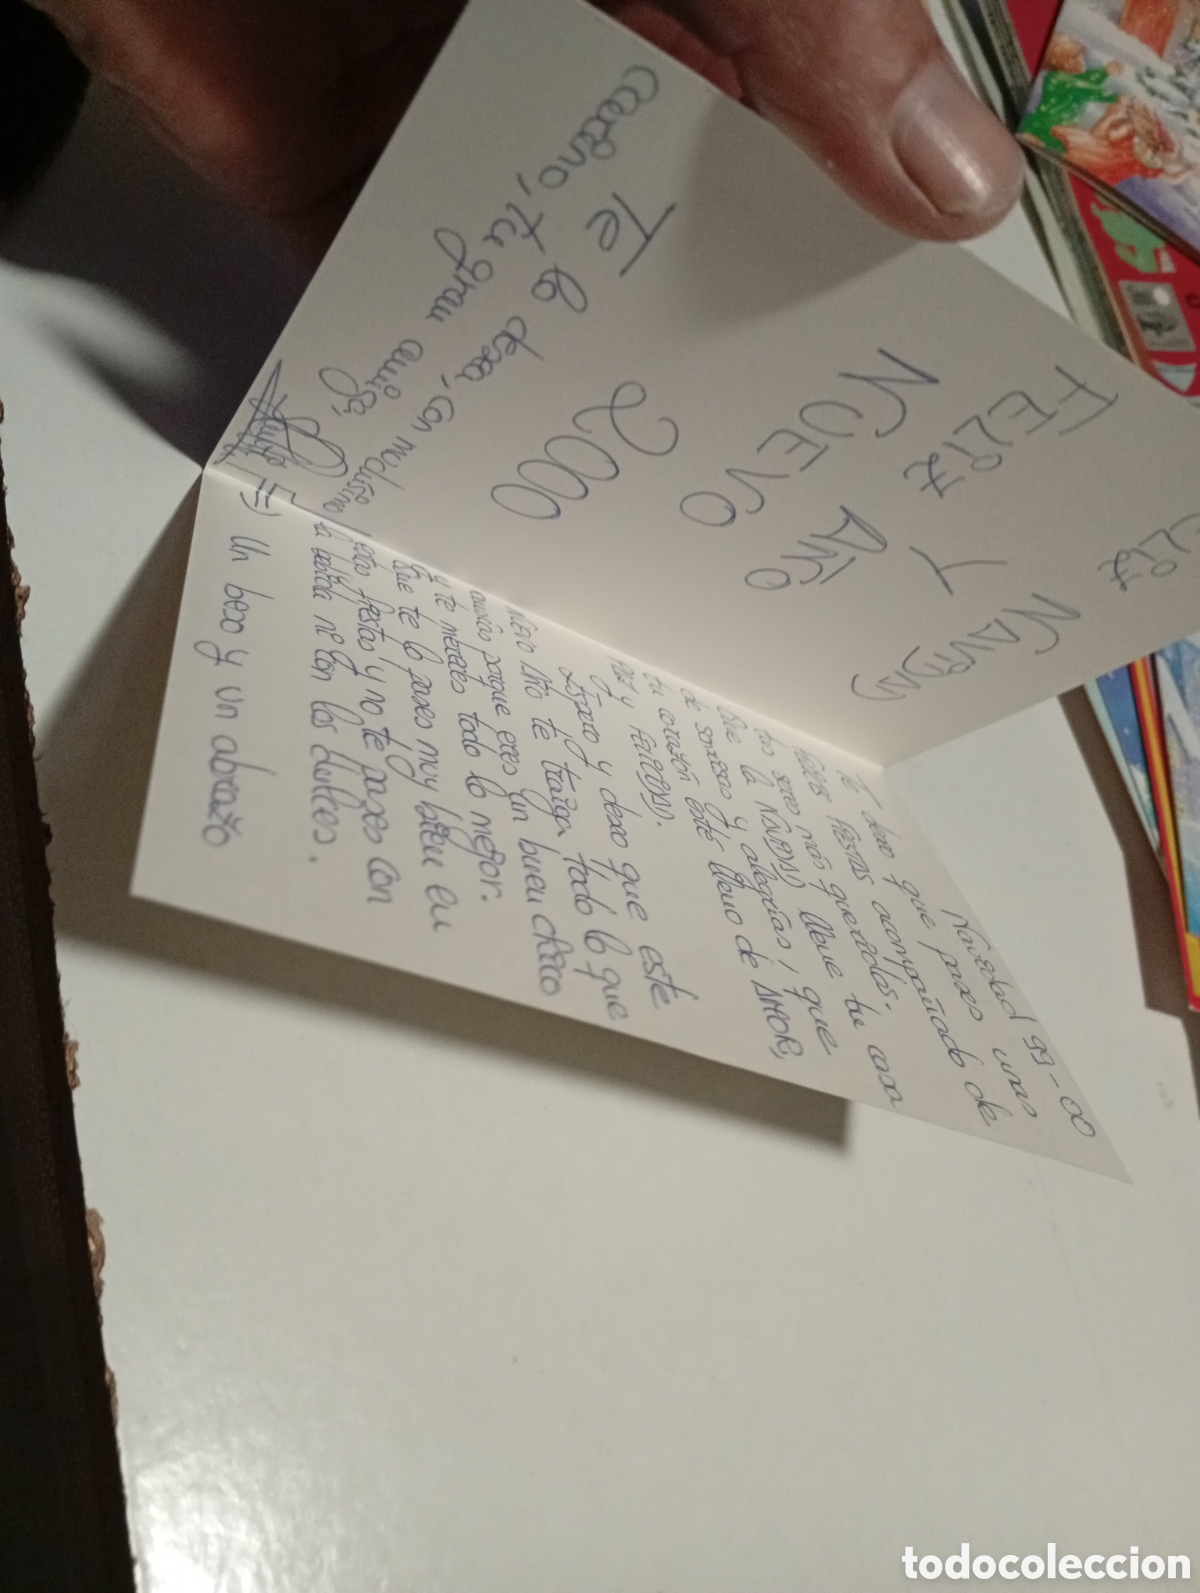 FELIZ
NAVIDAD
Y
FELIZ
AÑO
NUEVO
2000
Te lo desea, con muchísimo
cariño, tu gran amiga,
Navidad 99-00
Te deseo que pases unas
FELICES FIESTAS acompañado de
tus seres más queridos.
Que la NAVIDAD llene tu casa
de sonrisas y alegrías, que
tu corazón esté lleno de AMOR,
PAZ y FELICIDAD.
Espero y deseo que este
NUEVO AÑO te traiga todo lo que
ansías porque eres un buen chico
y te mereces todo lo mejor.
Que te lo pases muy bien en
estas fiestas y no te pases con
la bebida ni con los dulces.
Un beso y un abrazo
todocoleccion